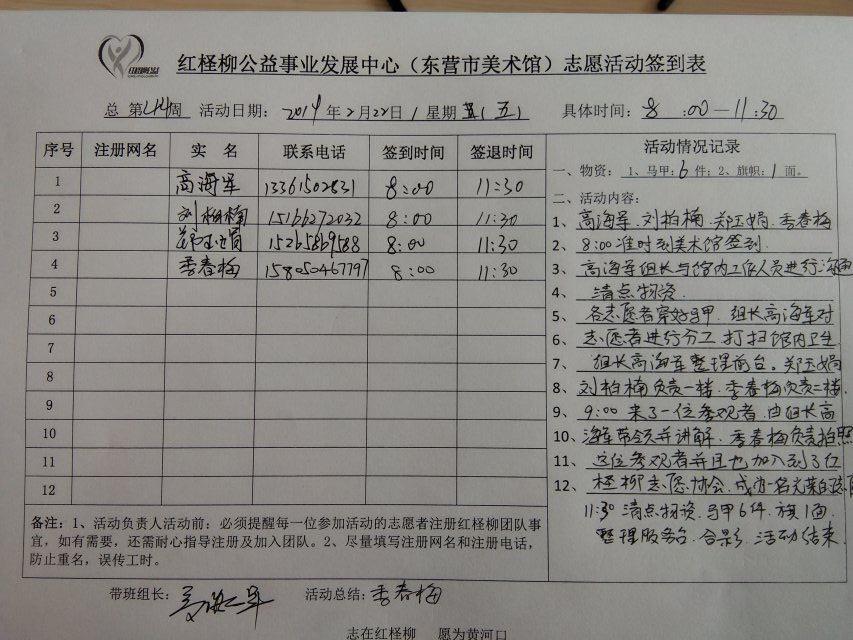 红柽柳公益事业发展中心（东营市美术馆）志愿活动签到表
总 第44周 活动日期：2014年2月22日/星期（五） 具体时间：8:00—11:30
序号 注册网名 实 名 联系电话 签到时间 签退时间
1 高海军 13361502831 8:00 11:30
2 刘柏楠 15166272032 8:00 11:30
3 郑玉娟 15265869588 8:00 11:30
4 季春梅 15805046779 8:00 11:30
5
6
7
8
9
10
11
12
备注：1、活动负责人活动前：必须提醒每一位参加活动的志愿者注册红柽柳团队事
宜，如有需要，还需耐心指导注册及加入团队。2、尽量填写注册网名和注册电话，
防止重名，误传工时。
活动情况记录
一、物资：1、马甲：6件；2、旗帜：1面。
二、活动内容：
1、高海军.刘柏楠.郑玉娟.季春梅
2、8:00准时到美术馆签到.
3、高海军组长与馆内工作人员进行沟通
4、清点物资.
5、各志愿者穿好马甲.组长高海军对
6、志愿者进行分工.打扫馆内卫生
7、组长高海军整理前台。郑玉娟
8、刘柏楠负责一楼.季春梅负责二楼.
9、9:00来了一位参观者.由组长高
10、海军带领并讲解.季春梅负责拍照
11、这位参观者并且也加入到了红
12、柽柳志愿协会.成为一名光荣的志愿
11:30清点物资.马甲6件.旗1面.
整理服务台.合影.活动结束.
带班组长：高海军 活动总结：季春梅
志在红柽柳 愿为黄河口